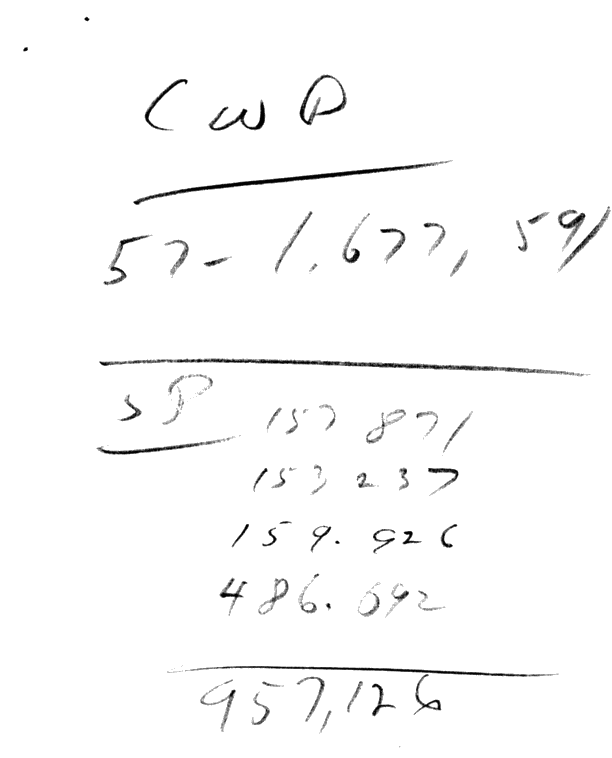 CWD
57- 1.677, 591
SP 157 871
153 237
159.926
486.092
957,126